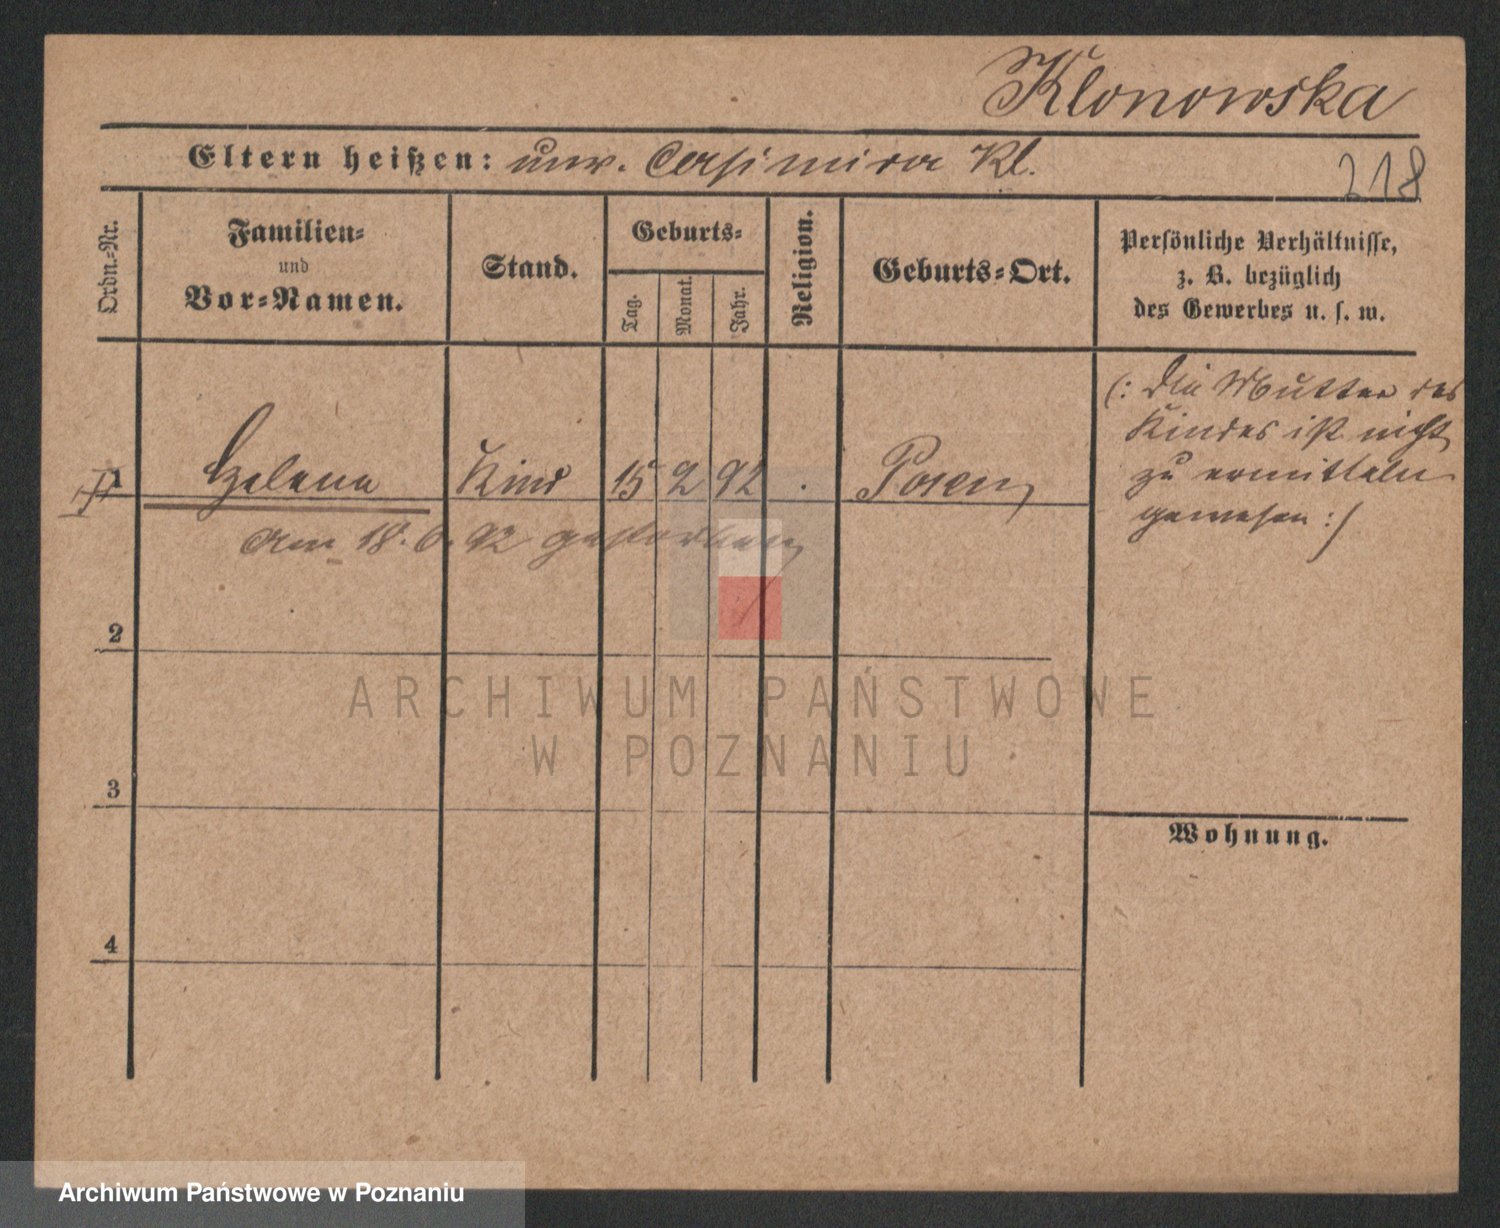 Klonowska
Eltern heißen: unv. Casimira Kl.
218
Ordn.-Nr.
Familien-
und
Vor-Namen.
Stand.
Geburts-
Tag.
Monat.
Jahr.
Religion.
Geburts-Ort.
Persönliche Verhältnisse,
z. B. bezüglich
des Gewerbes u. s. w.
(: Die Mutter des
Kindes ist nicht
zu ermitteln
gewesen :)
1 Helena Kind 15 2 92 . Posen
am 18. 6. 92 gestorben
2
ARCHIWUM PAŃSTWOWE
W POZNANIU
3
Wohnung.
4
Archiwum Państwowe w Poznaniu